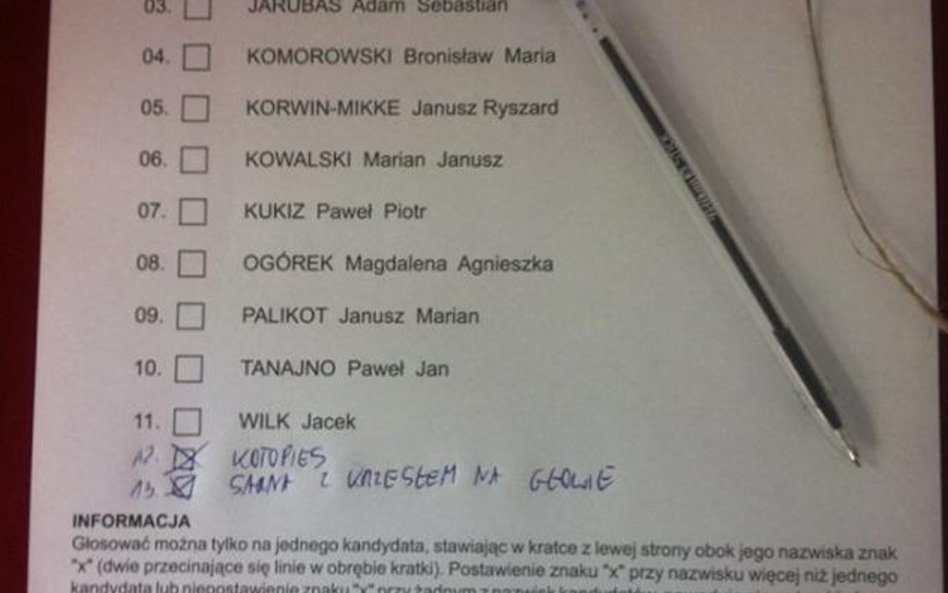 03. JARUBAS Adam Sebastian
04. KOMOROWSKI Bronisław Maria
05. KORWIN-MIKKE Janusz Ryszard
06. KOWALSKI Marian Janusz
07. KUKIZ Paweł Piotr
08. OGÓREK Magdalena Agnieszka
09. PALIKOT Janusz Marian
10. TANAJNO Paweł Jan
11. WILK Jacek
12. KOTOPIES
13. SARNA Z KRZESŁEM NA GŁOWIE
INFORMACJA
Głosować można tylko na jednego kandydata, stawiając w kratce z lewej strony obok jego nazwiska znak
"x" (dwie przecinające się linie w obrębie kratki). Postawienie znaku "x" przy nazwisku więcej niż jednego
kandydata lub niepostawienie znaku "x" przy żadnym z nazwisk kandydatów